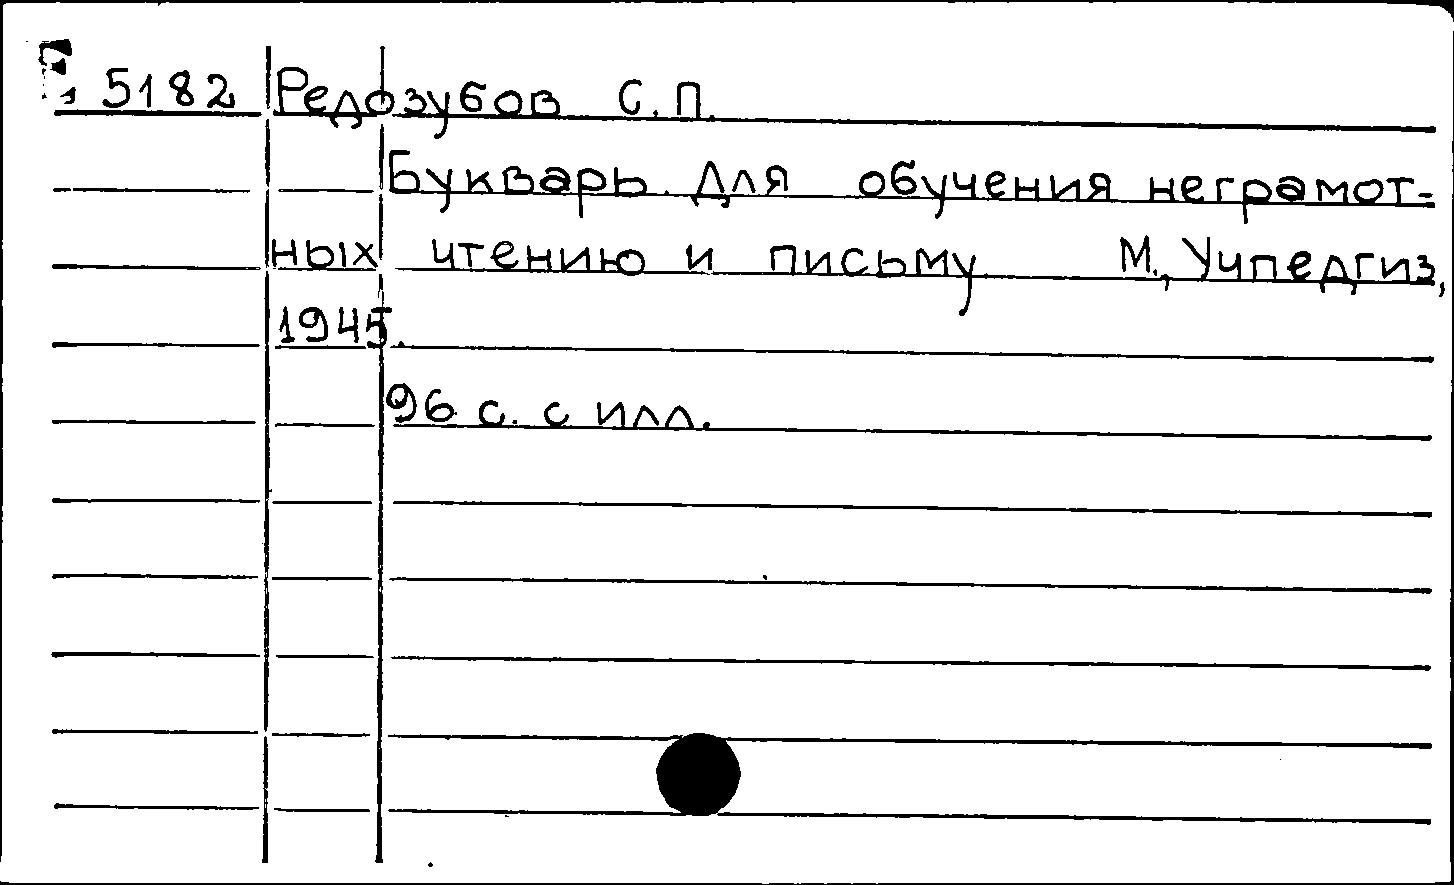 5182 Редозубов С.П.
Букварь. Для обучения неграмот-
ных чтению и письму М., Учпедгиз,
1945.
96 с. с илл.